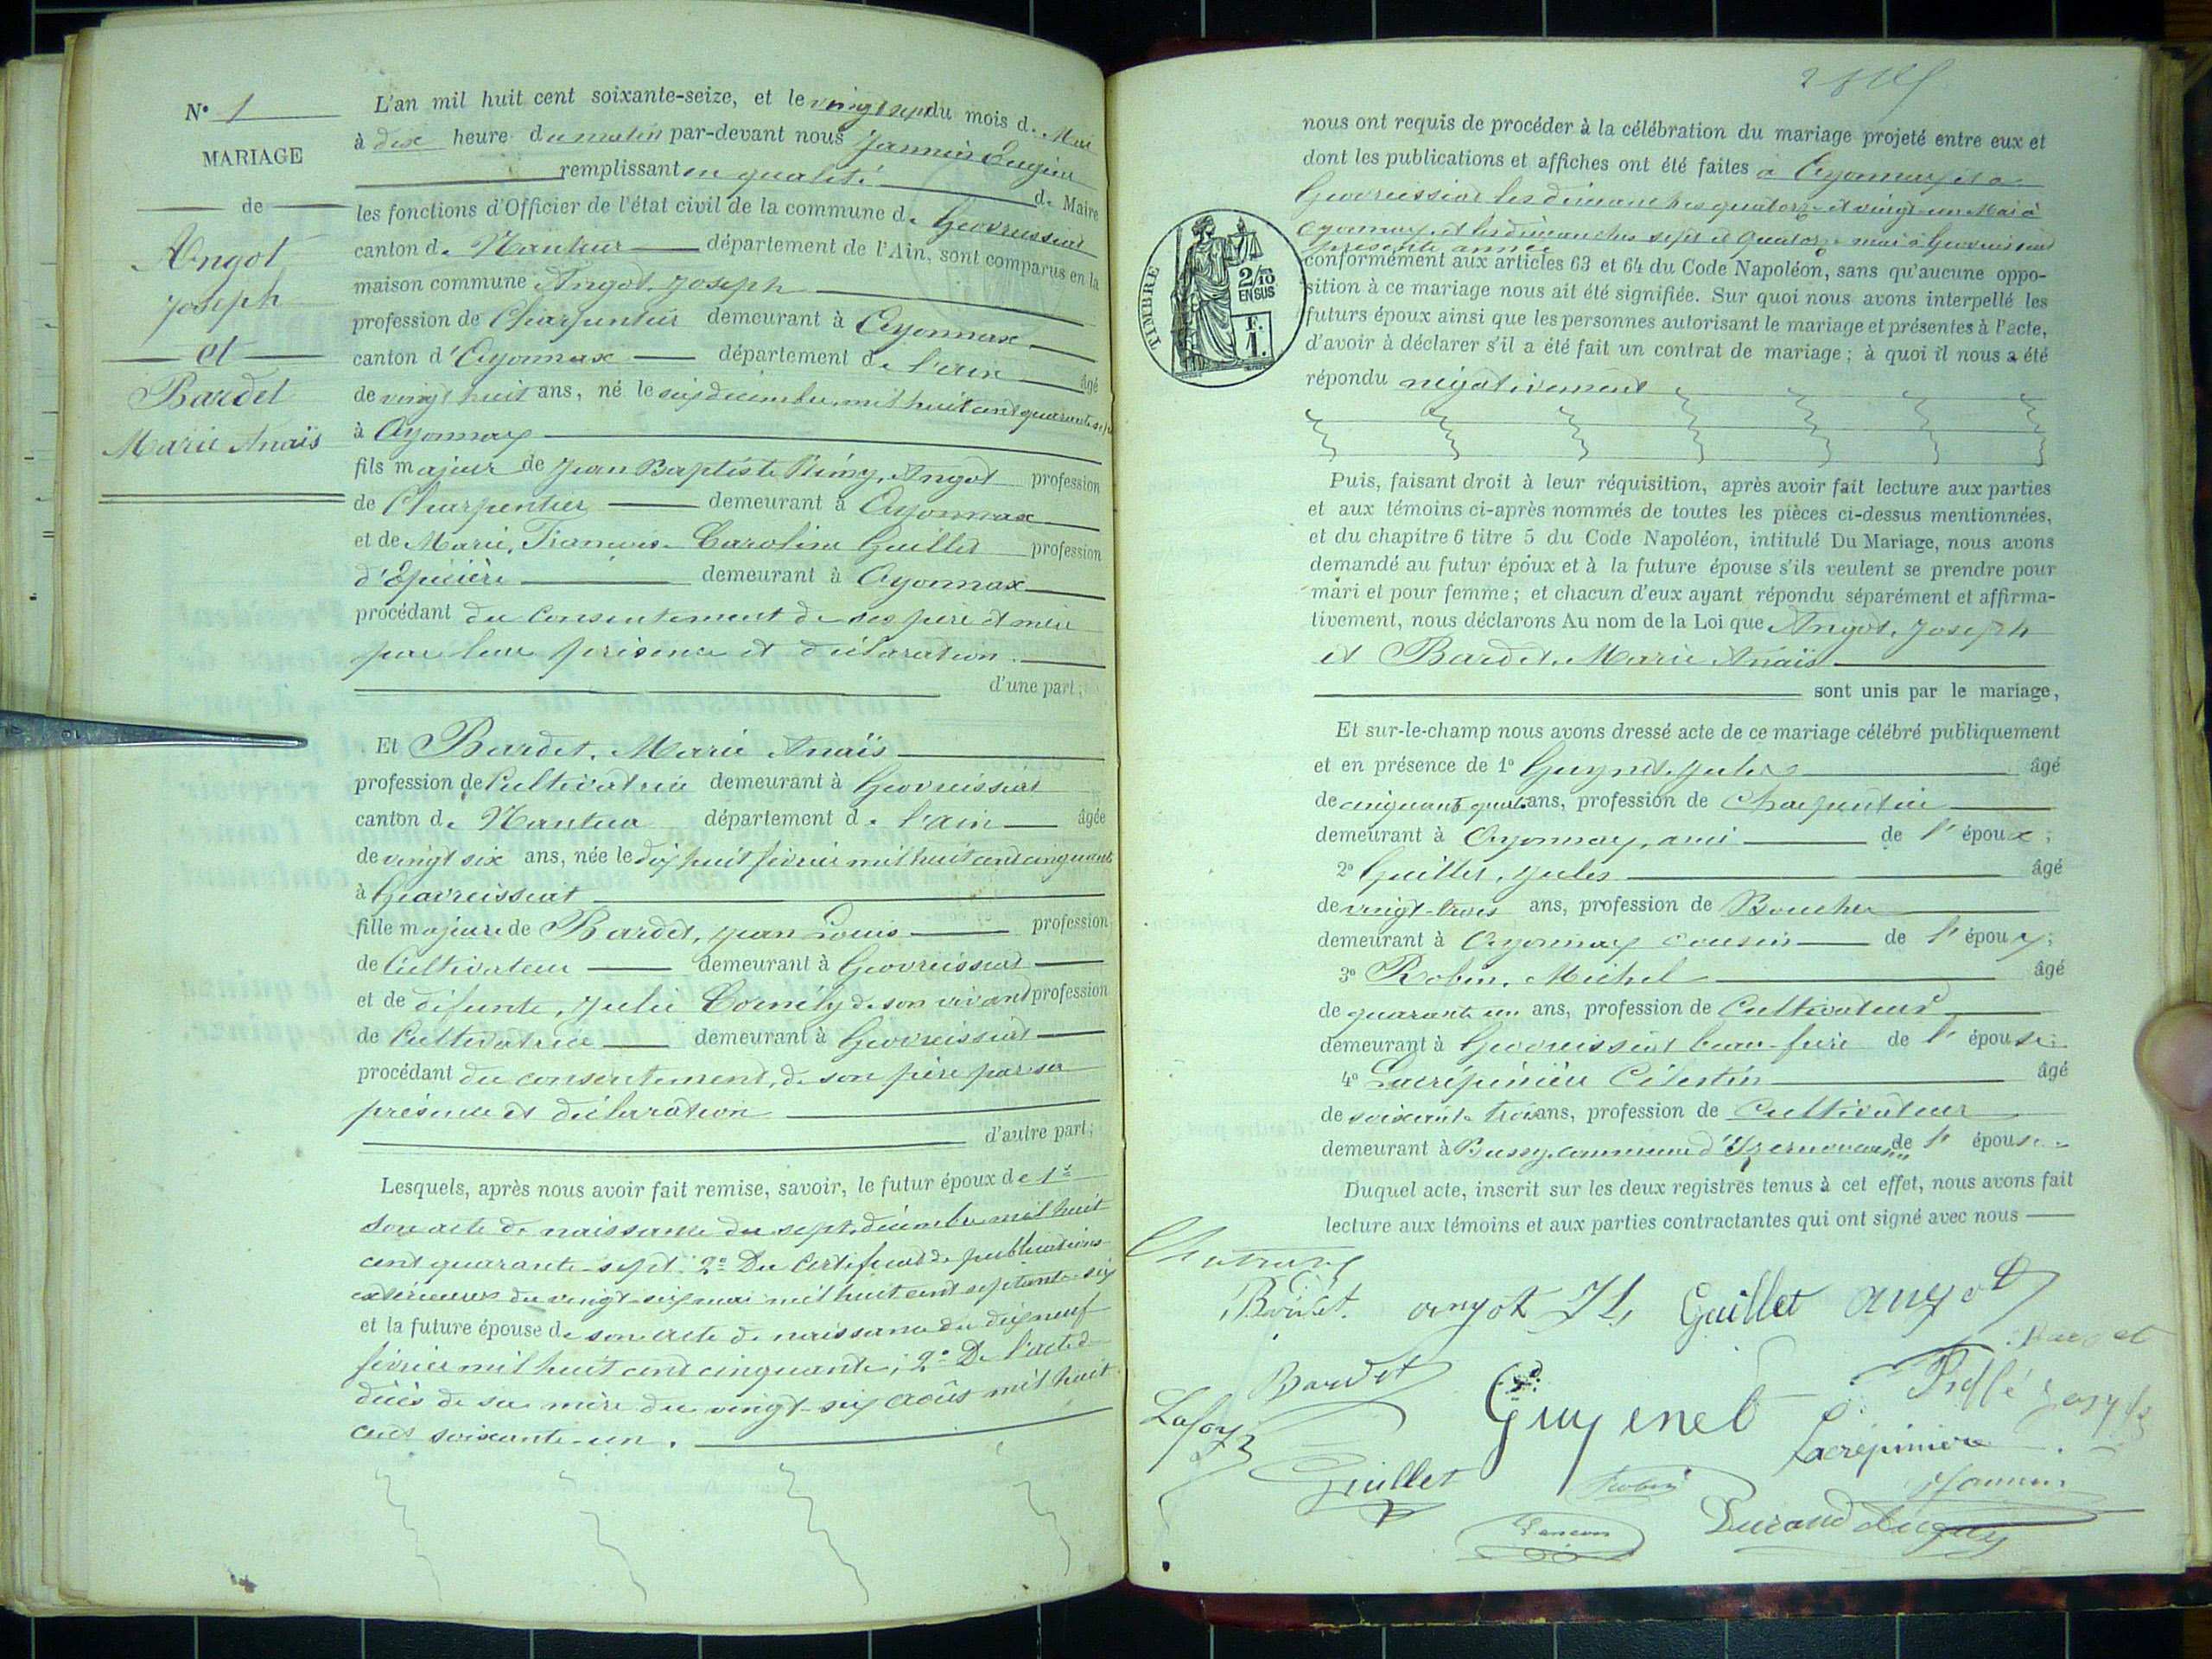 N° 1
MARIAGE
de
Angot
Joseph
et
Bardet
Marie Anaïs
L'an mil huit cent soixante-seize, et le vingt sept du mois de Mai
à dix heure du matin par-devant nous Jannin Eugène
remplissant en qualité de Maire
les fonctions d'Officier de l'état civil de la commune de Géovreissiat
canton de Nantua département de l'Ain, sont comparus en la
maison commune Angot, Joseph
profession de Charpentier demeurant à Oyonnax
canton d'Oyonnax département de l'ain âgé
de vingt huit ans, né le six décembre mil huit cent quarante sept
à Oyonnax
fils majeur de Jean Baptiste Rémy, Angot profession
de Charpentier demeurant à Oyonnax
et de Marie, Caroline Guillet profession
d'Epicière demeurant à Oyonnax
procédant du consentement de ses père et mère
par leur présence et déclaration.
d'une part;
Et Bardet, Marie Anaïs
profession de Cultivatrice demeurant à Géovreissiat
canton de Nantua département de l'ain âgée
de vingt six ans, née le dix huit février mil huit cent cinquante
à Géovreissiat
fille majeure de Bardet, Jean Louis profession
de Cultivateur demeurant à Géovreissiat
et de défunte, Julie de son vivant profession
de Cultivatrice demeurant à Géovreissiat
procédant du consentement, de son père par sa
présence et déclaration
d'autre part;
Lesquels, après nous avoir fait remise, savoir, le futur époux de 1°
son acte de naissance du sept décembre mil huit
cent quarante-sept. 2° Du certificat de publications
extérieures du vingt-six mai mil huit cent septante-six
et la future épouse de son acte de naissance du dix neuf
février mil huit cent cinquante; 2° De l'acte de
décès de sa mère du vingt-six août mil huit
cent soixante-un.
nous ont requis de procéder à la célébration du mariage projeté entre eux et
dont les publications et affiches ont été faites à Oyonnax et à
Géovreissiat les dimanches quatorze et vingt un Mai à
Oyonnax et les dimanches sept et quatorze mai à Géovreissiat
présente année
conformément aux articles 63 et 64 du Code Napoléon, sans qu'aucune oppo-
sition à ce mariage nous ait été signifiée. Sur quoi nous avons interpellé les
futurs époux ainsi que les personnes autorisant le mariage et présentes à l'acte,
d'avoir à déclarer s'il a été fait un contrat de mariage; à quoi il nous a été
répondu négativement
TIMBRE
2/10
EN SUS
F.
1.
Puis, faisant droit à leur réquisition, après avoir fait lecture aux parties
et aux témoins ci-après nommés de toutes les pièces ci-dessus mentionnées,
et du chapitre 6 titre 5 du Code Napoléon, intitulé Du Mariage, nous avons
demandé au futur époux et à la future épouse s'ils veulent se prendre pour
mari et pour femme; et chacun d'eux ayant répondu séparément et affirma-
tivement, nous déclarons Au nom de la Loi que Angot, Joseph
et Bardet, Marie Anaïs
sont unis par le mariage,
Et sur-le-champ nous avons dressé acte de ce mariage célébré publiquement
et en présence de 1° Jules âgé
de cinquante quatre ans, profession de Charpentier
demeurant à Oyonnax, ami de l'époux;
2° Guillet, Jules âgé
de vingt-trois ans, profession de Boucher
demeurant à Oyonnax cousin de l'époux;
3° Robin, Michel âgé
de quarante un ans, profession de Cultivateur
demeurant à Géovreissiat beau-frère de l'épouse;
4° Lacrépinière Célestin âgé
de soixante trois ans, profession de Cultivateur
demeurant à Bussy, commune d'Izernore de l'épouse
Duquel acte, inscrit sur les deux registres tenus à cet effet, nous avons fait
lecture aux témoins et aux parties contractantes qui ont signé avec nous
Bardet. angot JL Guillet angot
Bardet
Bardet Guyenet
Lacrépinière
Guillet Robin Jannin
Durand